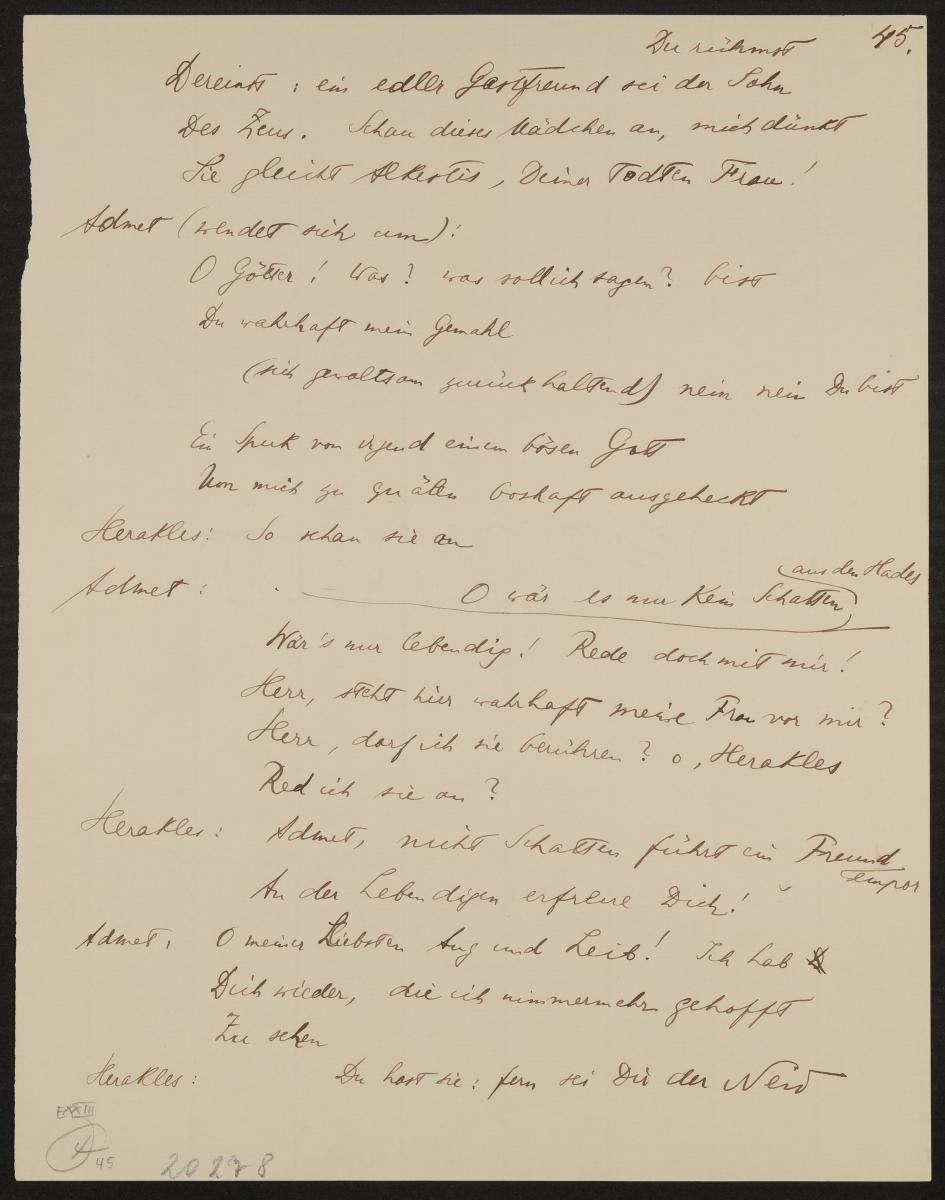 45.
Du rühmst
Dereinst: ein edler Gastfreund sei der Sohn
Des Zeus. Schau dieses Mädchen an, mich dünkt
Sie gleicht Alkestis, Deiner Todten Frau!
Admet (wendet sich um):
O Götter! Was? was soll ich sagen? bist
Du wahrhaft mein Gemahl
(sich gewaltsam zurückhaltend) nein nein Du bist
Ein Spuk von irgend einem bösen Gott
Um mich zu quälen boshaft ausgeheckt
Herakles: So schau sie an
aus den Hades
Admet: O wär es nur Kein Schatten
Wär's nur lebendig! Rede doch mit mir!
Herr, steht hier wahrhaft meine Frau vor mir?
Herr, darf ich sie berühren? o, Herakles
Red ich sie an?
Herakles: Admet, nicht Schatten führt ein Freund
empor
An der Lebendigen erfreue Dich!
Admet: O meiner Liebsten Aug und Leib! Ich hab
Dich wieder, die ich nimmermehr gehofft
Zu sehen
Herakles: Du hast sie: fern sei Dir der Neid
EXXIII
4
45
20278